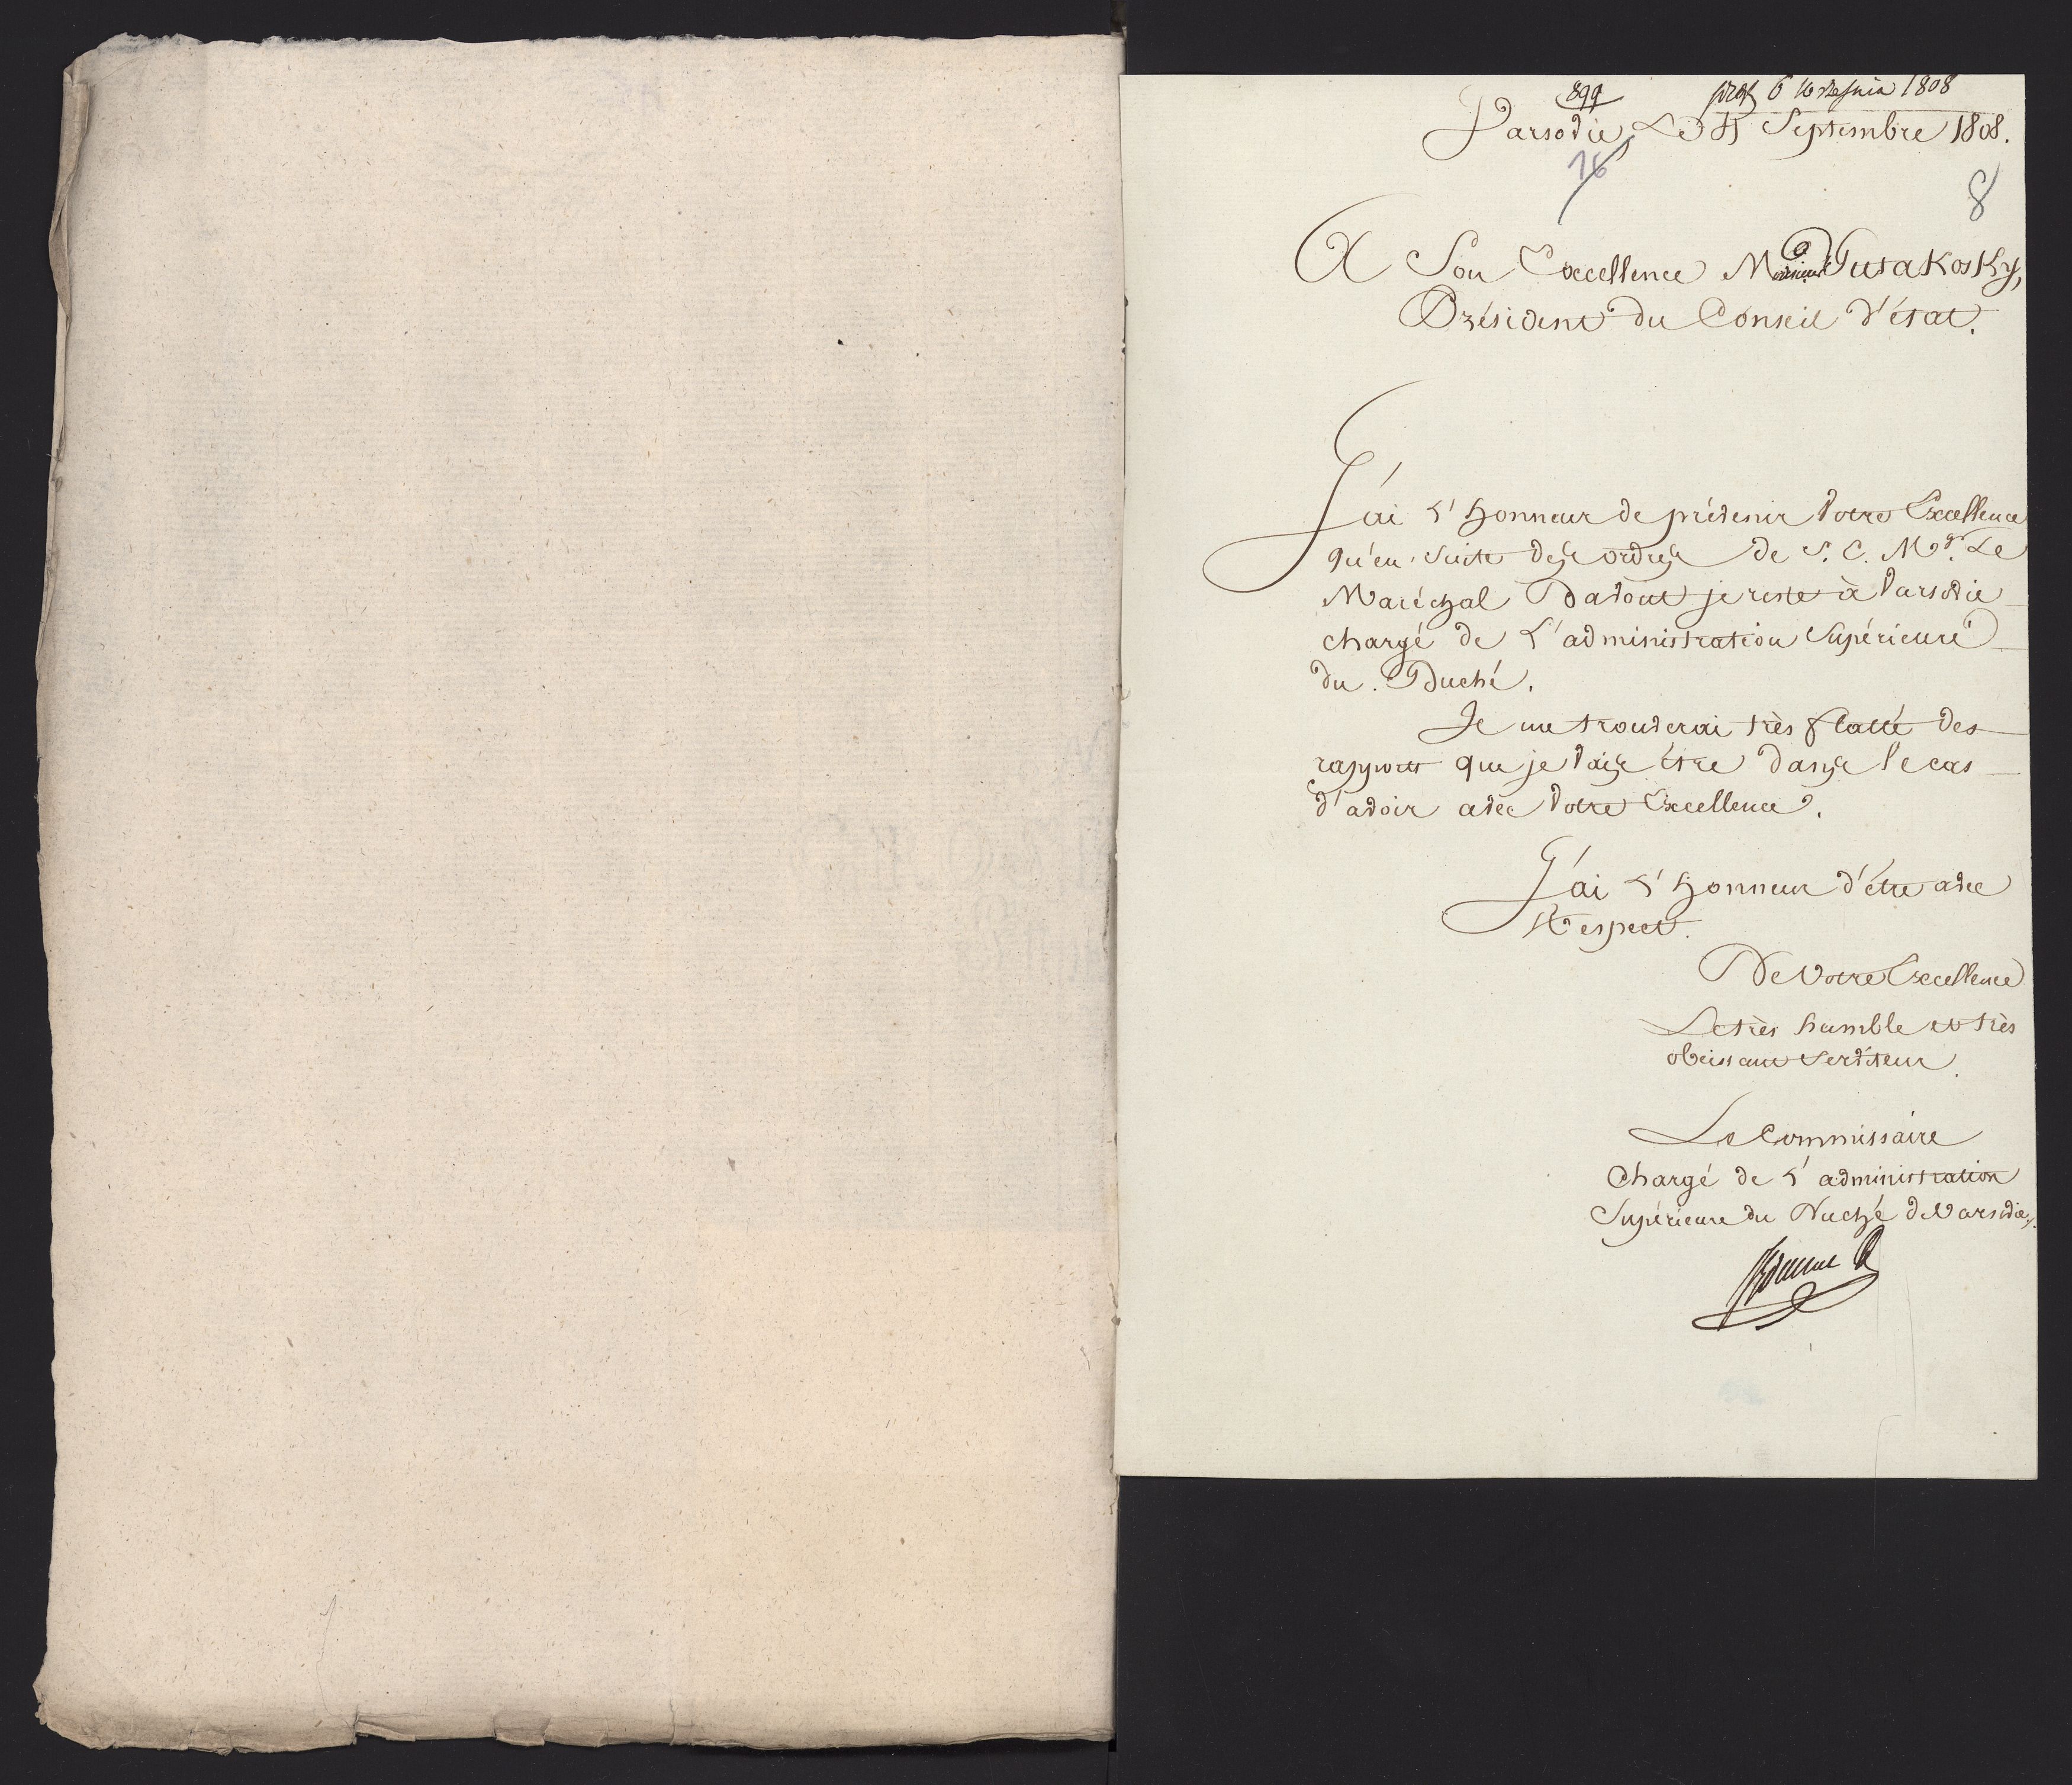 899 prez 6 Września 1808
Varsovie, Le 5 Septembre 1808.
16
8
A Son Excellence Monsieur Gutakosky,
Président du Conseil d'état.
J'ai L'honneur de prévenir Votre Excellence
qu'en suite des ordres de S. E. Mgr. Le
Maréchal Davout je reste à Varsovie
chargé de L'administration Supérieure
du Duché.
Je me trouverai très flatté des
rapports que je vais être dans le cas
d'avoir avec Votre Excellence.
J'ai L'honneur d'être avec
Respect.
De Votre Excellence
Le très humble et très
obéissant Serviteur.
Le Commissaire
Chargé de L'administration
Supérieure du Duché de Varsovie,